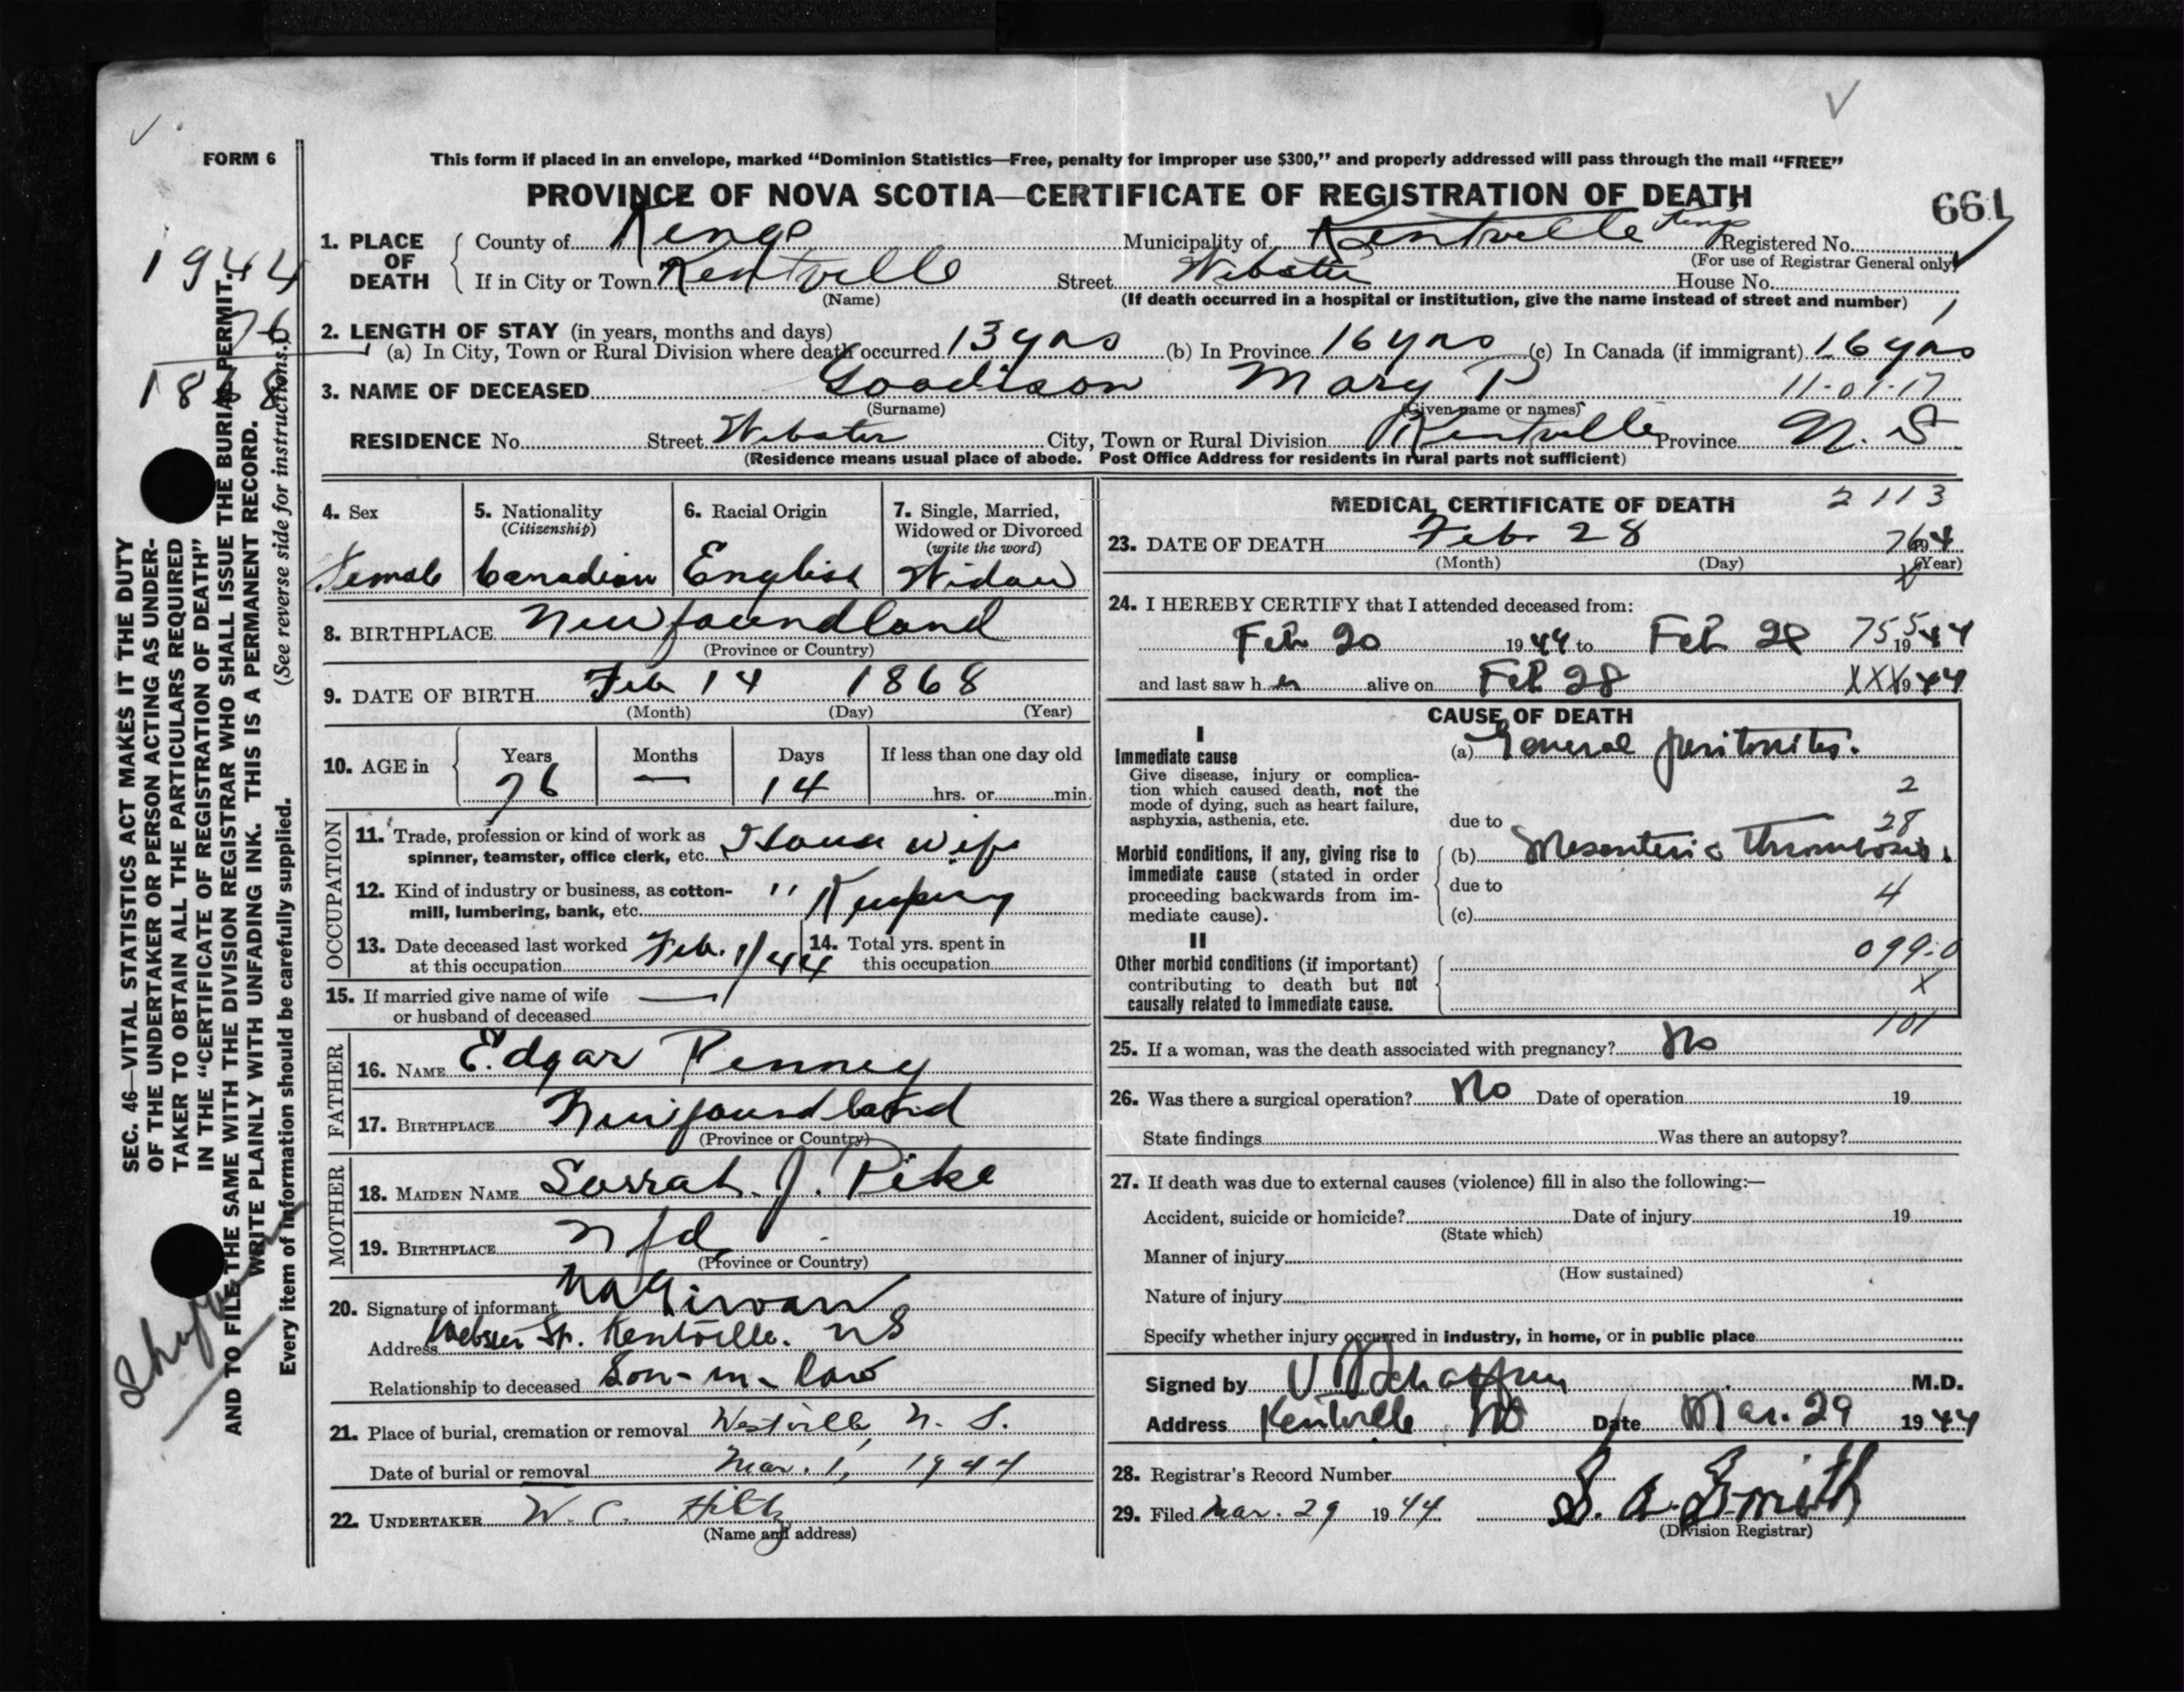 FORM 6
This form if placed in an envelope, marked “Dominion Statistics—Free, penalty for improper use $300,” and properly addressed will pass through the mail “FREE”
PROVINCE OF NOVA SCOTIA—CERTIFICATE OF REGISTRATION OF DEATH
661
1. PLACE OF DEATH
County of Kings Municipality of Kentville Kings Registered No.
(For use of Registrar General only)
If in City or Town Kentville Street Webster House No.
(Name) (If death occurred in a hospital or institution, give the name instead of street and number)
2. LENGTH OF STAY (in years, months and days)
(a) In City, Town or Rural Division where death occurred 13 yrs (b) In Province 16 yrs (c) In Canada (if immigrant) 16 yrs
3. NAME OF DECEASED Goodison Mary P 11-01-17
(Surname) (Given name or names)
RESIDENCE No. Street Webster City, Town or Rural Division Kentville Province N. S
(Residence means usual place of abode. Post Office Address for residents in rural parts not sufficient)
1944
76
1868
SEC. 46—VITAL STATISTICS ACT MAKES IT THE DUTY
OF THE UNDERTAKER OR PERSON ACTING AS UNDER-
TAKER TO OBTAIN ALL THE PARTICULARS REQUIRED
IN THE “CERTIFICATE OF REGISTRATION OF DEATH”
AND TO FILE THE SAME WITH THE DIVISION REGISTRAR WHO SHALL ISSUE THE BURIAL PERMIT.
WRITE PLAINLY WITH UNFADING INK. THIS IS A PERMANENT RECORD.
Every item of information should be carefully supplied. (See reverse side for instructions.)
4. Sex 5. Nationality (Citizenship) 6. Racial Origin 7. Single, Married, Widowed or Divorced (write the word)
Female Canadian English Widow
8. BIRTHPLACE Newfoundland
(Province or Country)
9. DATE OF BIRTH Feb 14 1868
(Month) (Day) (Year)
10. AGE in Years Months Days If less than one day old
76 — 14 hrs. or min.
OCCUPATION
11. Trade, profession or kind of work as
spinner, teamster, office clerk, etc. House wife
12. Kind of industry or business, as cotton-
mill, lumbering, bank, etc. " Keeping
13. Date deceased last worked
at this occupation Feb. 1/44
14. Total yrs. spent in
this occupation
15. If married give name of wife —
or husband of deceased
FATHER
16. NAME Edgar Penney
17. BIRTHPLACE Newfoundland
(Province or Country)
MOTHER
18. MAIDEN NAME Sarrah. J. Pike
19. BIRTHPLACE Nfd
(Province or Country)
20. Signature of informant
Address Webster St. Kentville. NS
Relationship to deceased Son-in-law
21. Place of burial, cremation or removal Westville, N. S.
Date of burial or removal Mar. 1, 1944
22. UNDERTAKER W. C. Hiltz
(Name and address)
MEDICAL CERTIFICATE OF DEATH 2113
23. DATE OF DEATH Feb 28
(Month) (Day) (Year)
24. I HEREBY CERTIFY that I attended deceased from:
Feb 20 1944 to Feb 28 1944
and last saw her alive on Feb 28 1944
CAUSE OF DEATH
I
Immediate cause
Give disease, injury or complica-
tion which caused death, not the
mode of dying, such as heart failure,
asphyxia, asthenia, etc.
(a) General peritonitis.
2
due to 28
Morbid conditions, if any, giving rise to
immediate cause (stated in order
proceeding backwards from im-
mediate cause).
(b) Mesenteric Thrombosis.
due to 4
(c)
II
Other morbid conditions (if important)
contributing to death but not
causally related to immediate cause.
099.0
X
101
25. If a woman, was the death associated with pregnancy? No
26. Was there a surgical operation? No Date of operation 19
State findings Was there an autopsy?
27. If death was due to external causes (violence) fill in also the following:—
Accident, suicide or homicide? Date of injury 19
(State which)
Manner of injury
(How sustained)
Nature of injury
Specify whether injury occurred in industry, in home, or in public place
Signed by M.D.
Address Kentville NS Date Mar. 29 1944
28. Registrar's Record Number
29. Filed Mar. 29 1944 S. A. Smith
(Division Registrar)